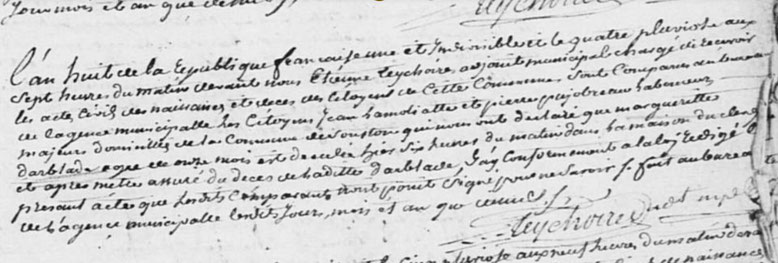 jour mois et an que dessus
teychoire
L'an huit de la republique francaise une et Indivisible et le quatre pluviose aux
sept heures du matin devant nous Etienne teychoire, adjoint municipal chargé de recevoir
les acte civil des naissances et deces des Citoyens de cette Commune, sont Comparus au bureau
de l'agence municipalle les Citoyens jean lamoliatte et pierre pujobreau laboureurs
majeurs domiciliés de la Commune de soustons qui nous ont declaré que marguerite
darblade agee de onze mois est decedée hier six heures du matin dans la maison du
et apres mettre assuré du deces de ladite darblade, J'ay Conforement a la loy Redigé le
presant acte que lesdits Comparants n'ont point signé pour ne savoir f. fait au bureau
de l'agence municipalle lesdits jour, mois et an que dessus
teychoire adjt
pluviose aux neuf heures du matin
de naissance